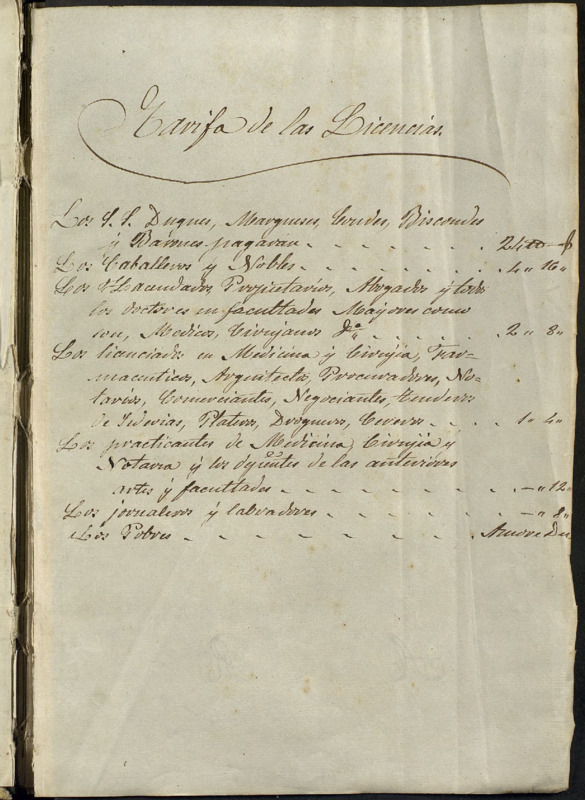 Tarifa de las Licencias.
Los S. S. Duques, Marqueses, Condes, Biscondes
y Barones pagaran - - - - - - 24
Los Caballeros y Nobles - - - - - - 4 " 16 "
Los Hacendados, Propietarios, Abogados y todos
los doctores en facultades Mayores como
son, Medicos, Cirujanos &a - - - - 2 " 8 "
Los licenciados en Medicina y Cirujia, Far-
maceuticos, Arquitectos, Procuradores, No-
tarios, Comerciantes, Negociantes, Tenderos
de Sederias, Plateros, Drogueros, Cereros - - - - 1 " 4 "
Los practicantes de Medicina, Cirujia y
Notaria y los oyentes de las anteriores
artes y facultades - - - - - - — " 12 "
Los jornaleros y labradores - - - - - - — " 8 "
Los Pobres - - - - - - - Amore Dei